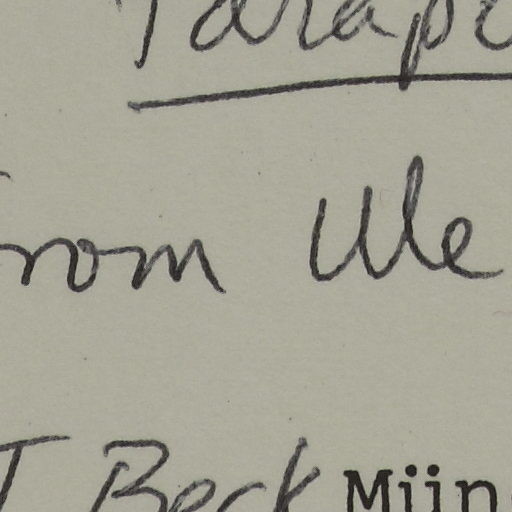 Parape
rom Ule
T Beck Mün